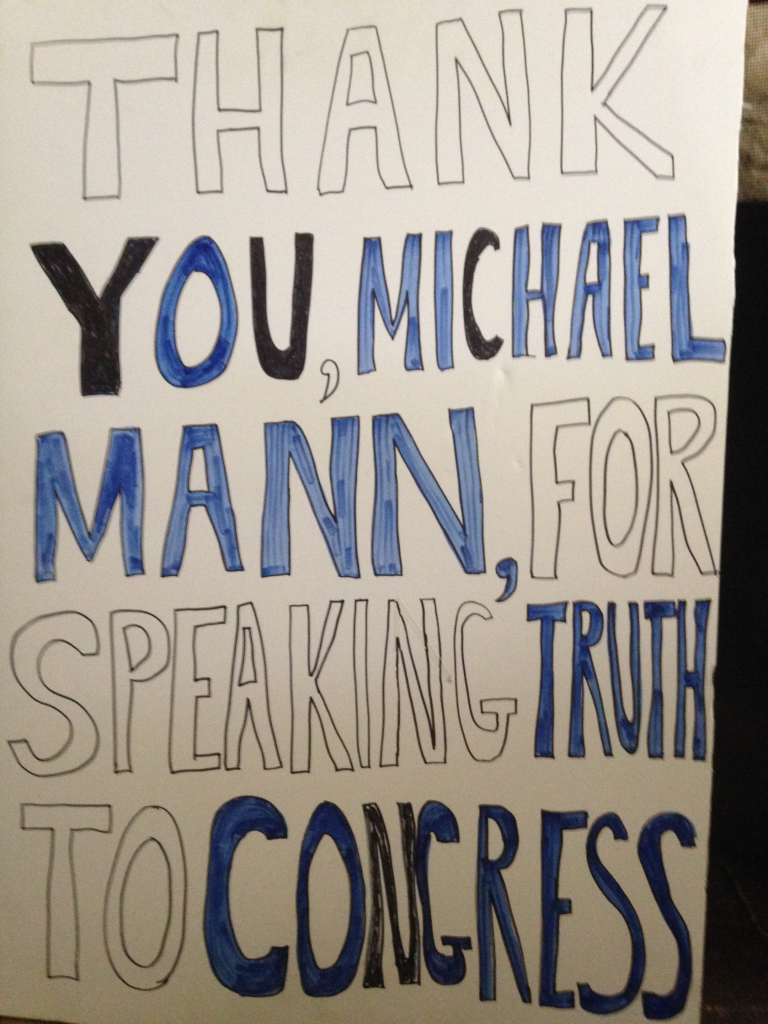 THANK
YOU, MICHAEL
MANN, FOR
SPEAKING TRUTH
TO CONGRESS